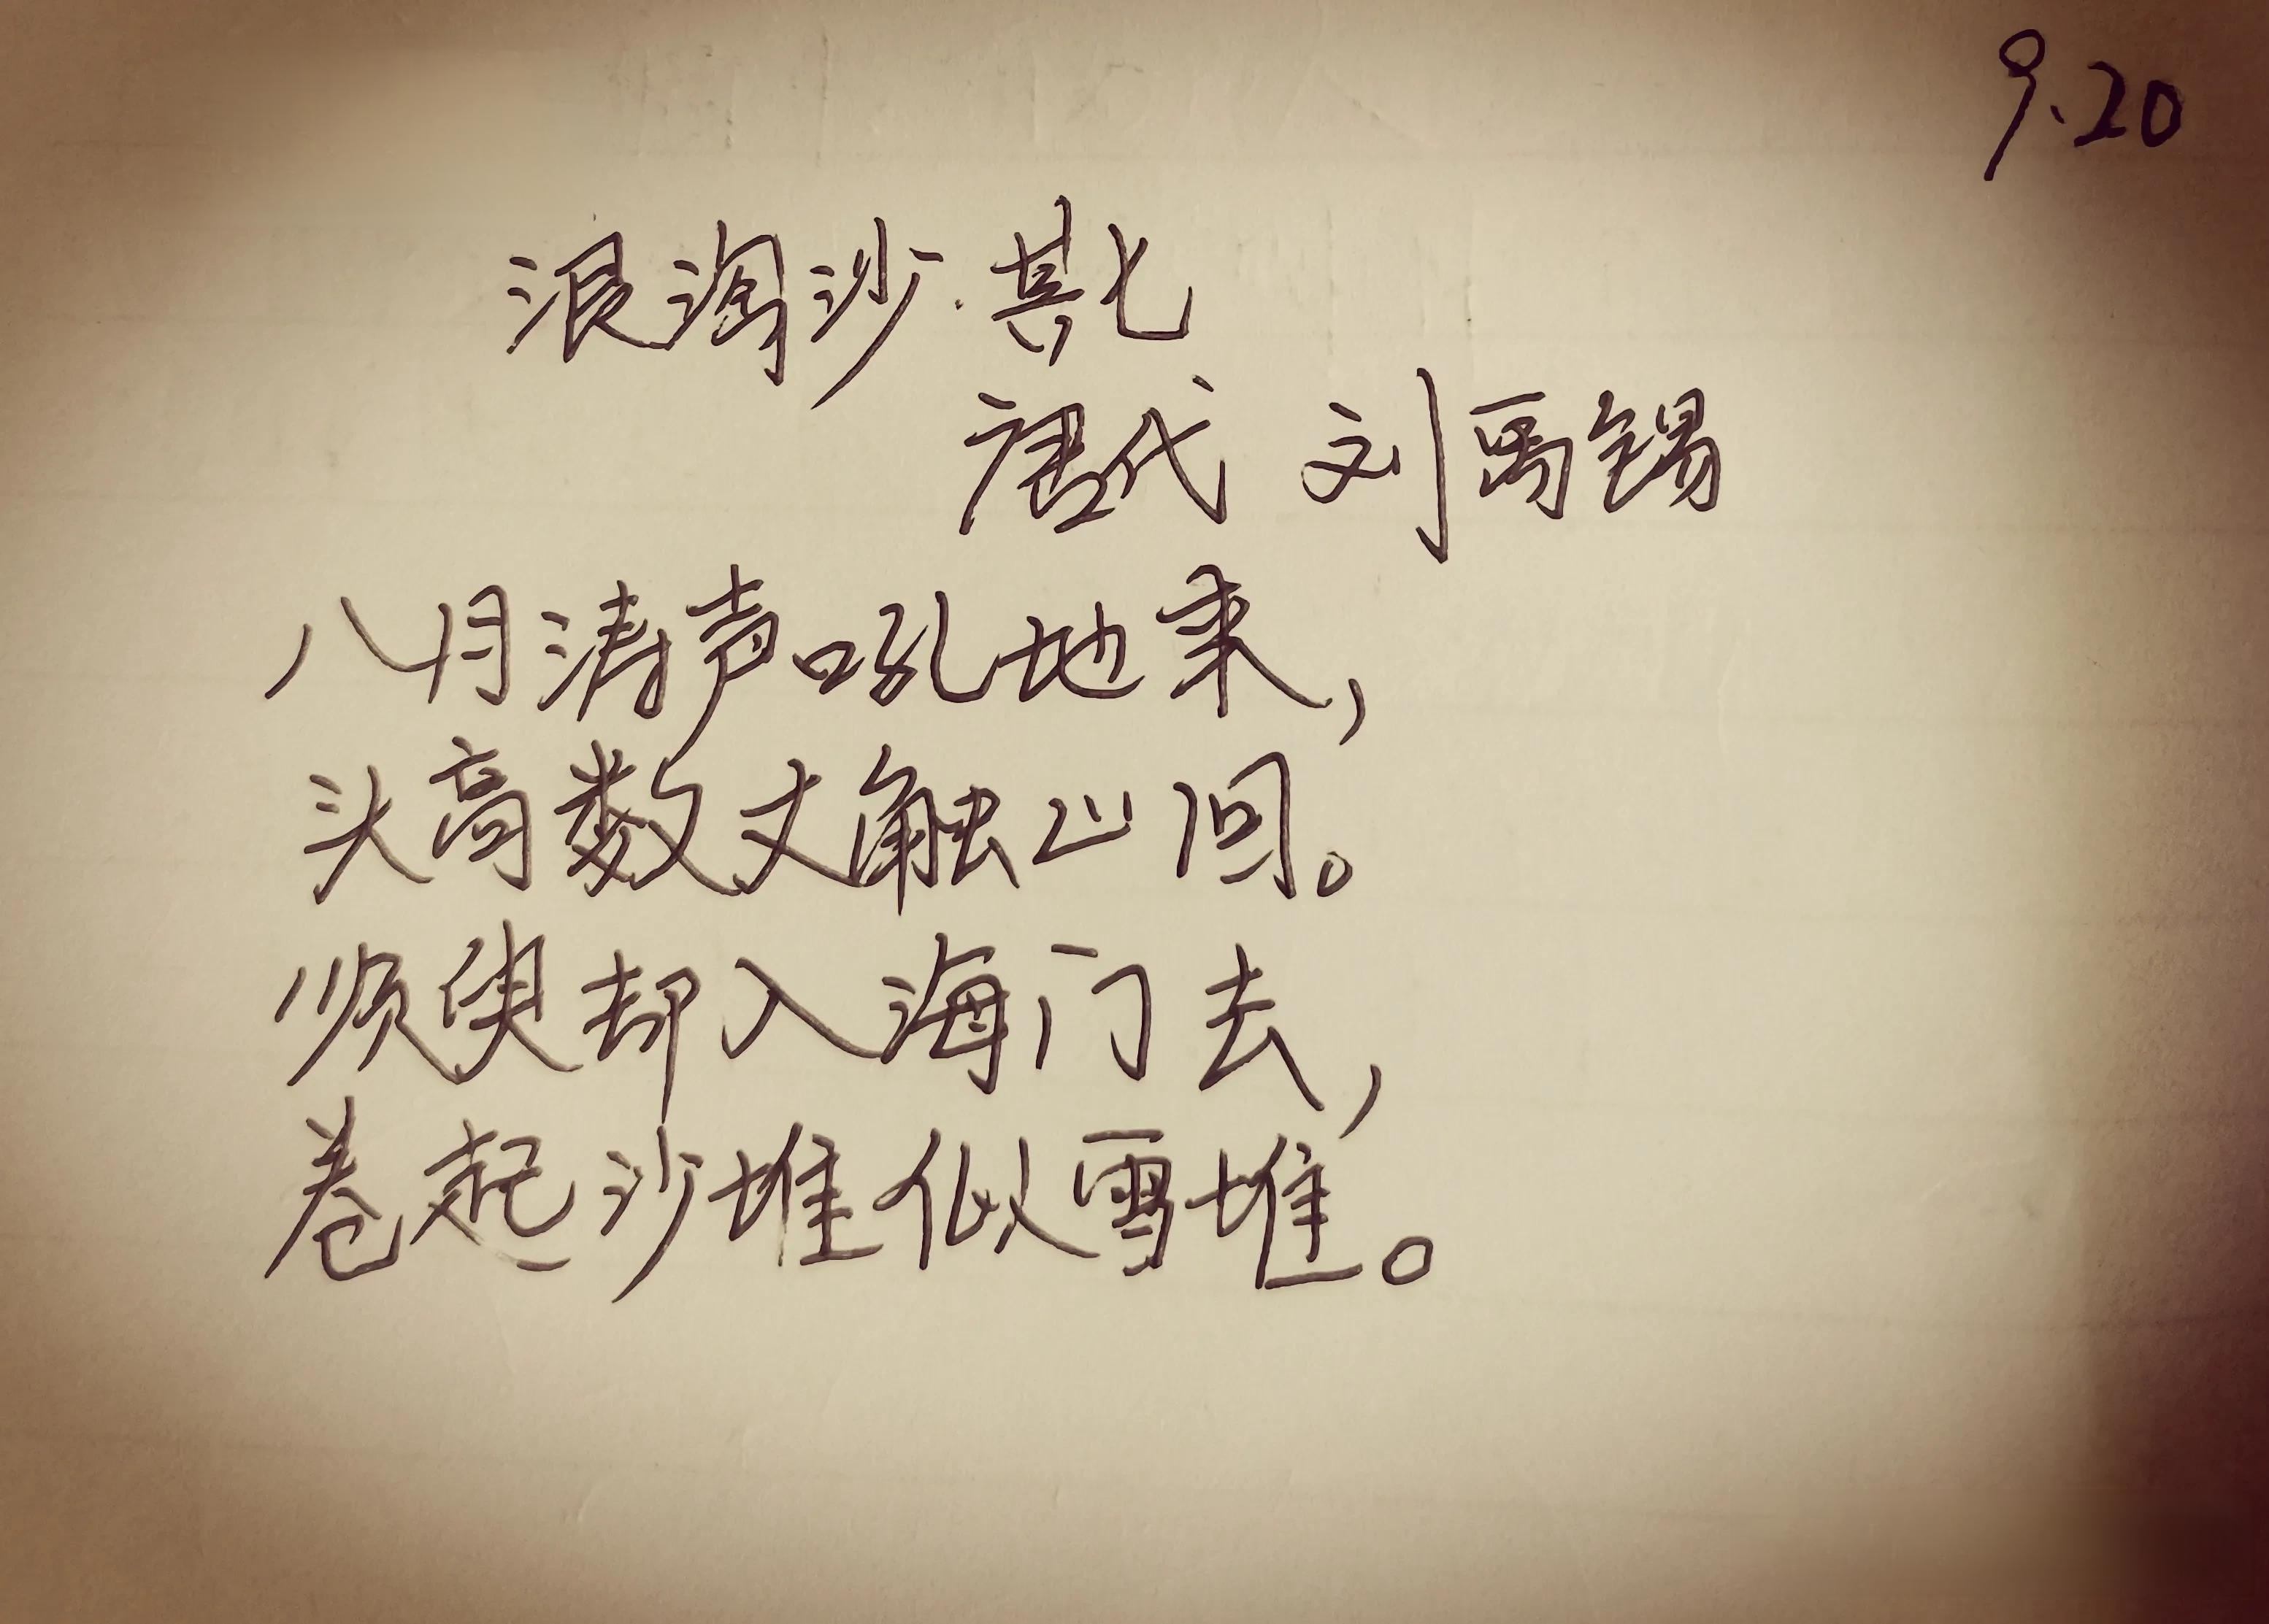 9.20
浪淘沙·其七
唐代 刘禹锡
八月涛声吼地来,
头高数丈触山回。
须臾却入海门去,
卷起沙堆似雪堆。